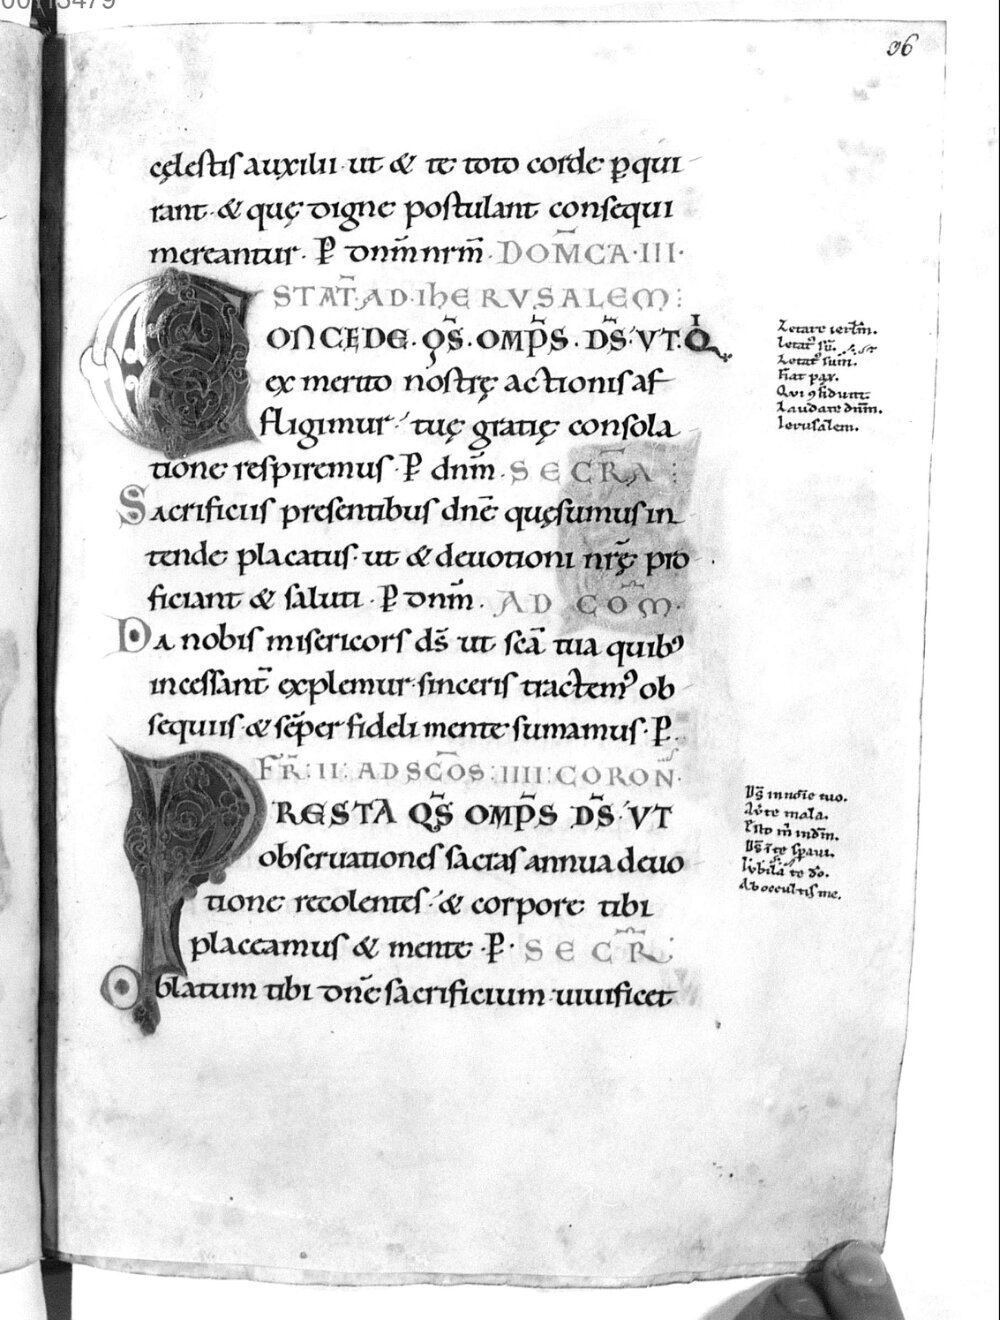 00113479
96
cęlestis auxilii· ut & te toto corde ꝑqui
rant· & quę digne postulant consequi
mereantur· P̄ dnm̄ nrm̄· DOM̄CA·III·
STAT̄·AD·IhERVSALEM:
CONCEDE· QS̄· OMP̄S· DS̄· VT· Qͥ
ex merito nostrę actionis af
fligimur· tuę gratię consola
tione respiremus· P̄ dnm̄· SECR̄A:
Sacrificiis presentibus dnē quęsumus in
tende placatus· ut & deuotioni nrę̄ pro
ficiant & saluti· P̄ dnm̄· AD COM̄·
Da nobis misericors ds̄ ut scā tua quibꝰ
incessant̄ explemur· sinceris tractemꝰ ob
sequiis· & sēper fideli mente sumamus· P̄·
FR̄: II: AD SC̄OS: IIII: CORON̄·
PRESTA QS̄ OMP̄S DS̄· VT
obseruationes sacras annua deuo
tione recolentes· & corpore tibi
placeamus & mente· P̄· SECR̄:
Oblatum tibi dnē sacrificium· uiuificet
Letare ierłm.
Letatꝰ sū.
Letatꝰ sum.
Fiat pax.
Qui ꝯfidunt.
Laudate dnm̄.
Ierusalem.
Ds̄ in nōie tuo.
Auerte mala.
Ds̄
Iubilate do.
Ab occultis me.